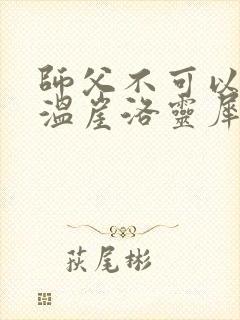 師父不可以
溫崖洛靈犀
荻尾彬